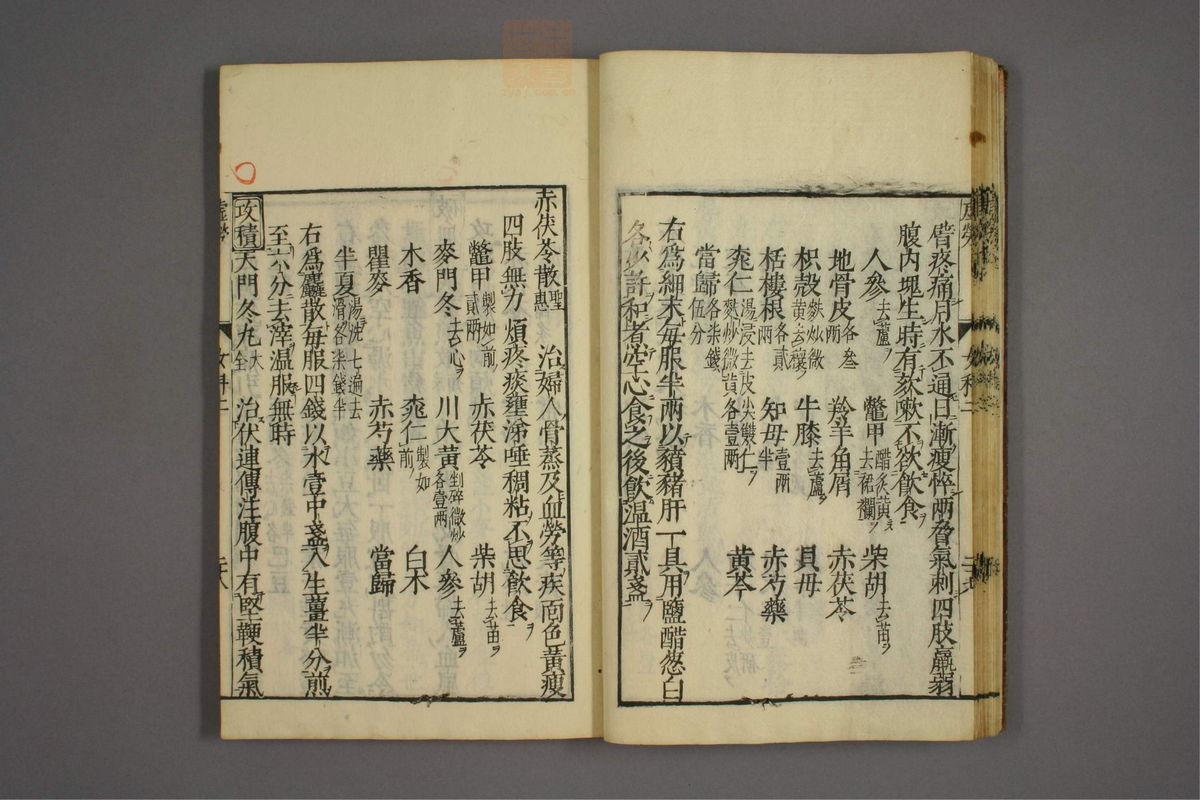 背疼痛月水不通日漸瘦悴兩脅氣刺四肢羸弱
腹内塊生時有欬嗽不欲飲食
人參去蘆 鼈甲醋炙黄去裙襴 柴胡去苗
地骨皮各叁兩 羚羊角屑 赤茯苓
枳殻麩炒微黄去穰 牛膝去蘆 貝母
栝樓根各貳兩 知母壹兩半 赤芍藥
桃仁湯浸去皮尖雙仁麩炒微黄各壹兩 黄芩
當歸各柒錢伍分
右爲細末毎服半兩以豬肝一具用鹽醋葱白
各少許和煮空心食之後飲温酒貳盞
赤茯苓散聖惠 治婦人骨蒸及血勞等疾面色黄瘦
四肢無力煩疼痰壅涕唾稠粘不思飲食
鼈甲製如前貳兩 赤茯苓 柴胡去苗
麥門冬去心 川大黄剉碎微炒各壹兩 人參去蘆
木香 桃仁製如前 白术
瞿麥 赤芍藥 當歸
半夏湯洗七遍去滑各柒錢半
右爲麤散毎服四錢以水壹中盞入生薑半分煎
至六分去滓温服無時
攻積天門冬丸大全 治伏連傳注腹中有堅鞕積氣
虚勞 女科二
女科二